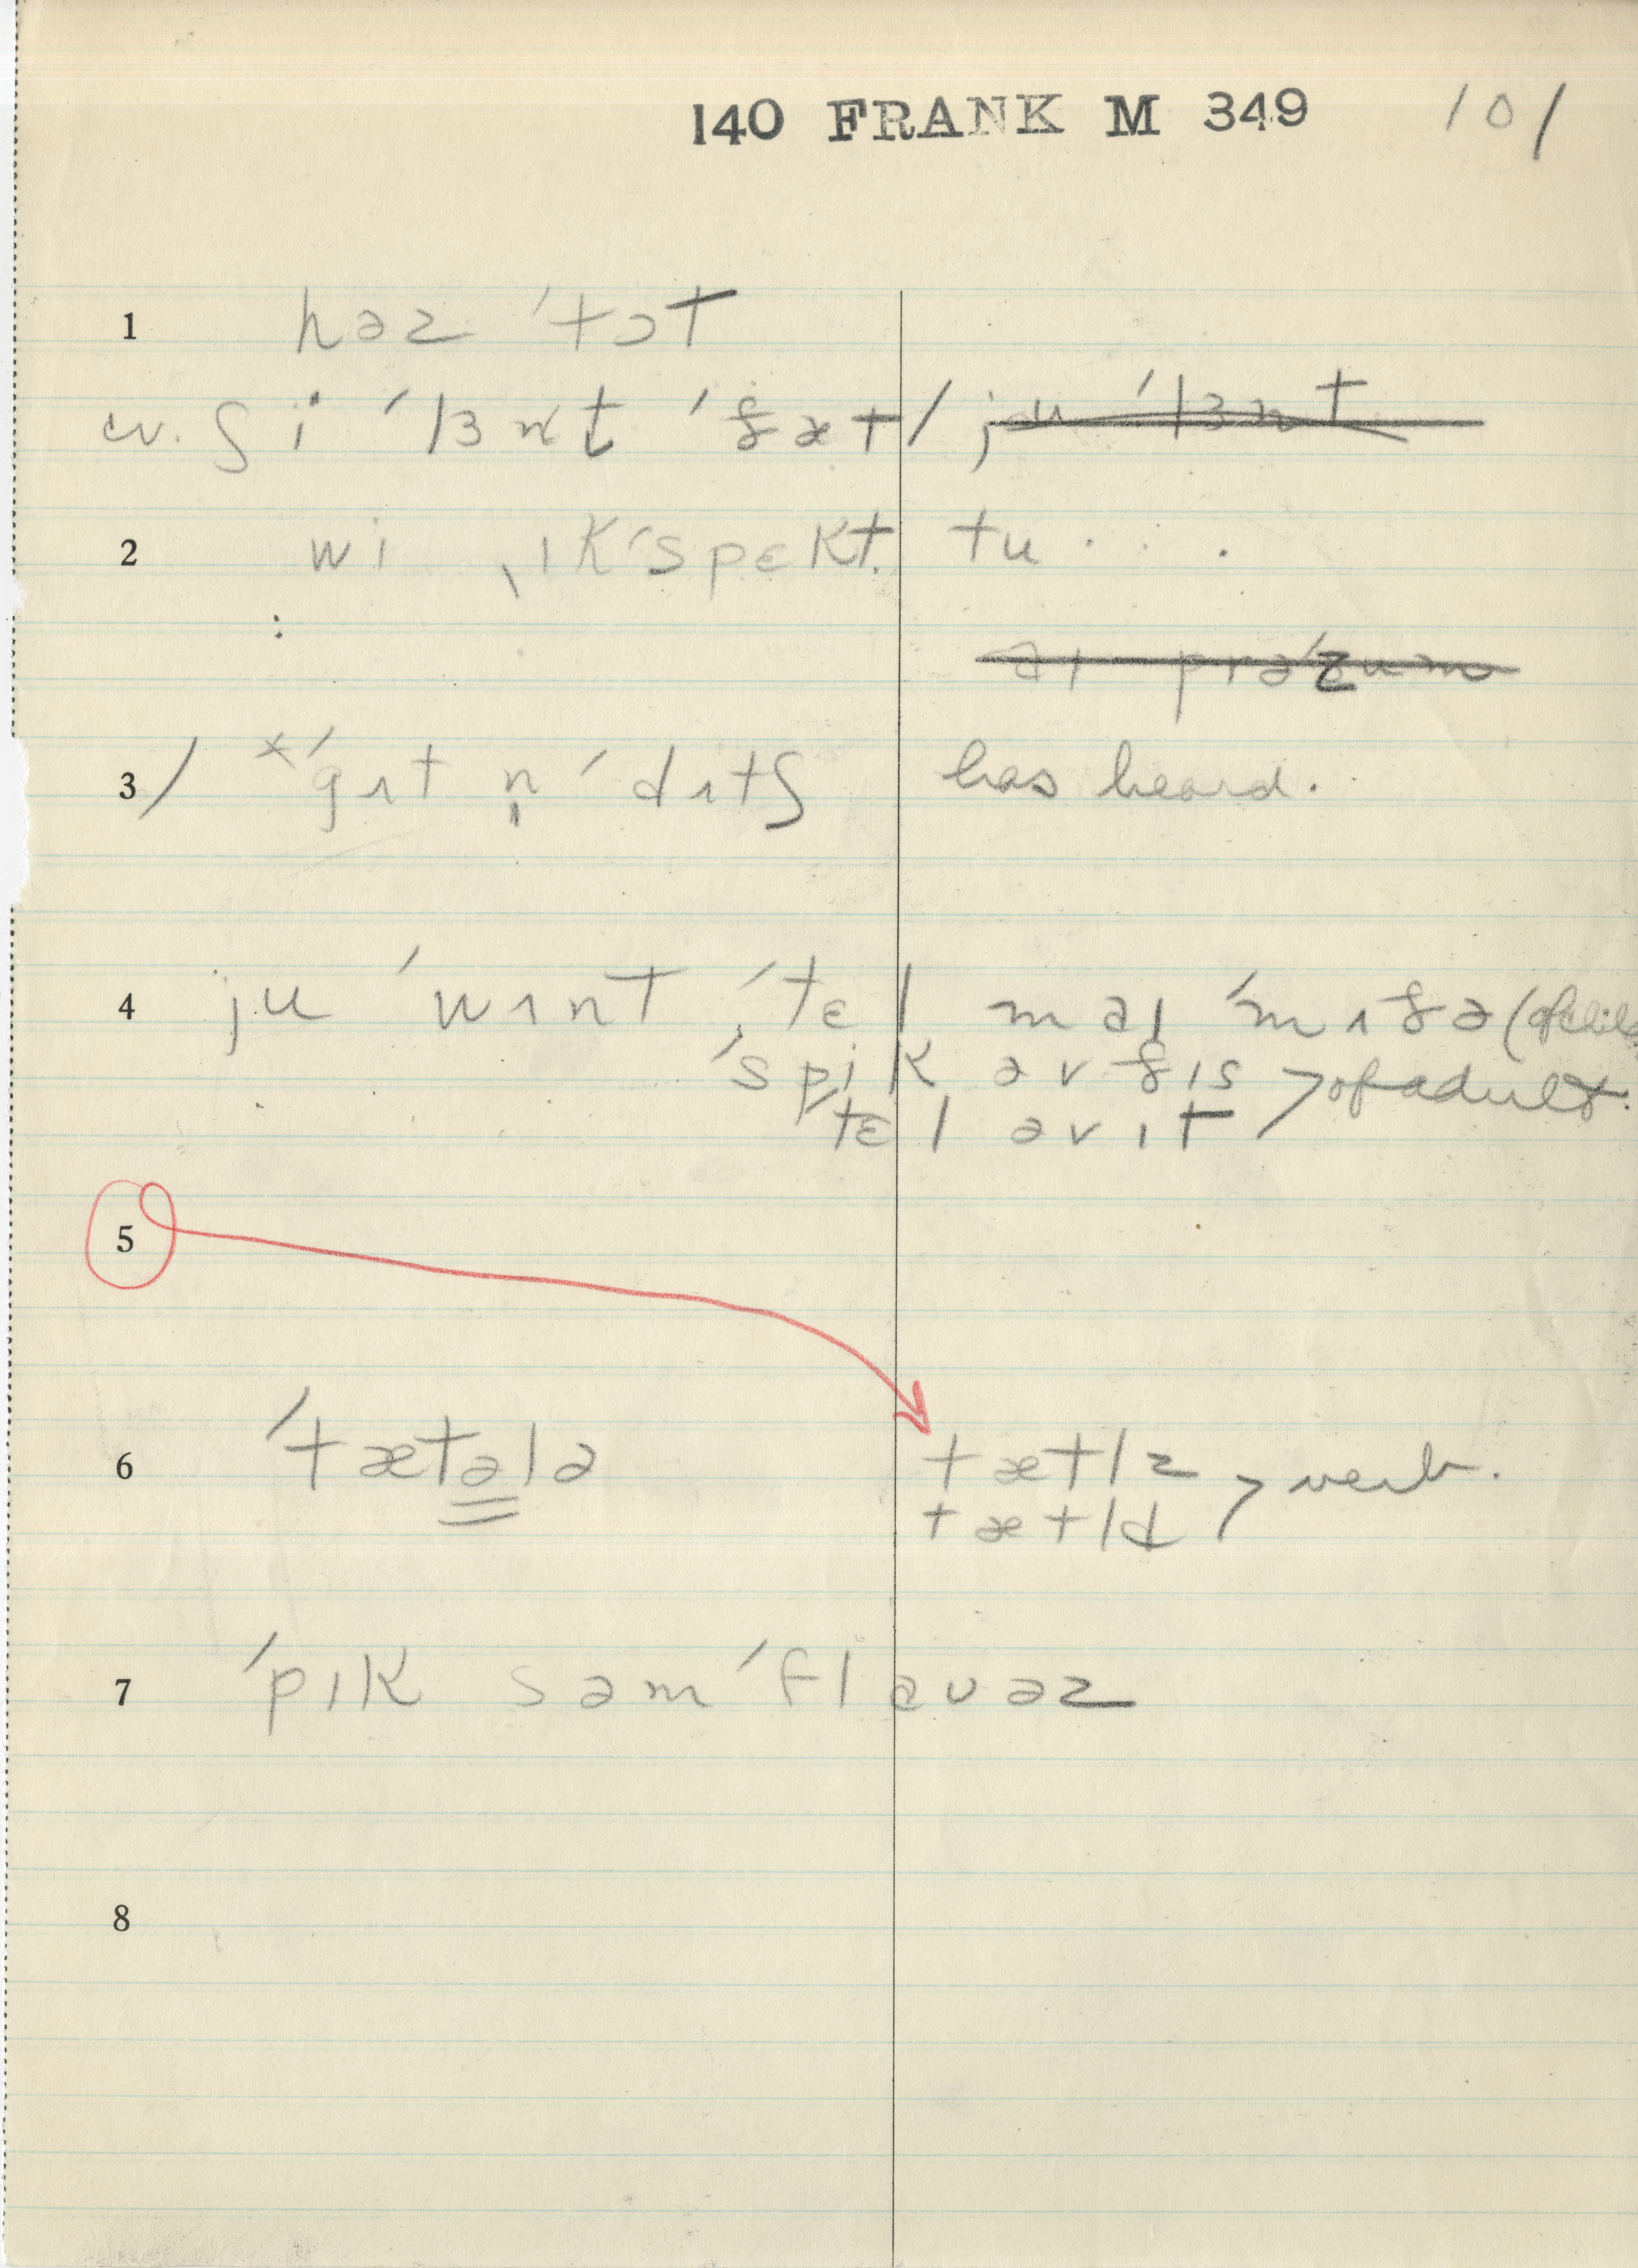 140 FRANK M 349 101
1 həz ˈtɔt
cv. ʃi ˈlɜnt ˈðæt / ju ˈlɜnt
2 wi ˌɪkˈspɛkt tu . . .
:
aɪ prəˈzum
3/ *ˈgɪt n̩ ˈdɪtʃ has heard.
4 ju ˈwɪnt ˈtɛl maɪ ˈmɪðə (of child
ˈspik əv ðɪs > of adult.
ˈtɛl əv ɪt
5
6 ˈtætələ tætlz > verb.
tætld
7 ˈpɪk səm ˈflaʊəz
8